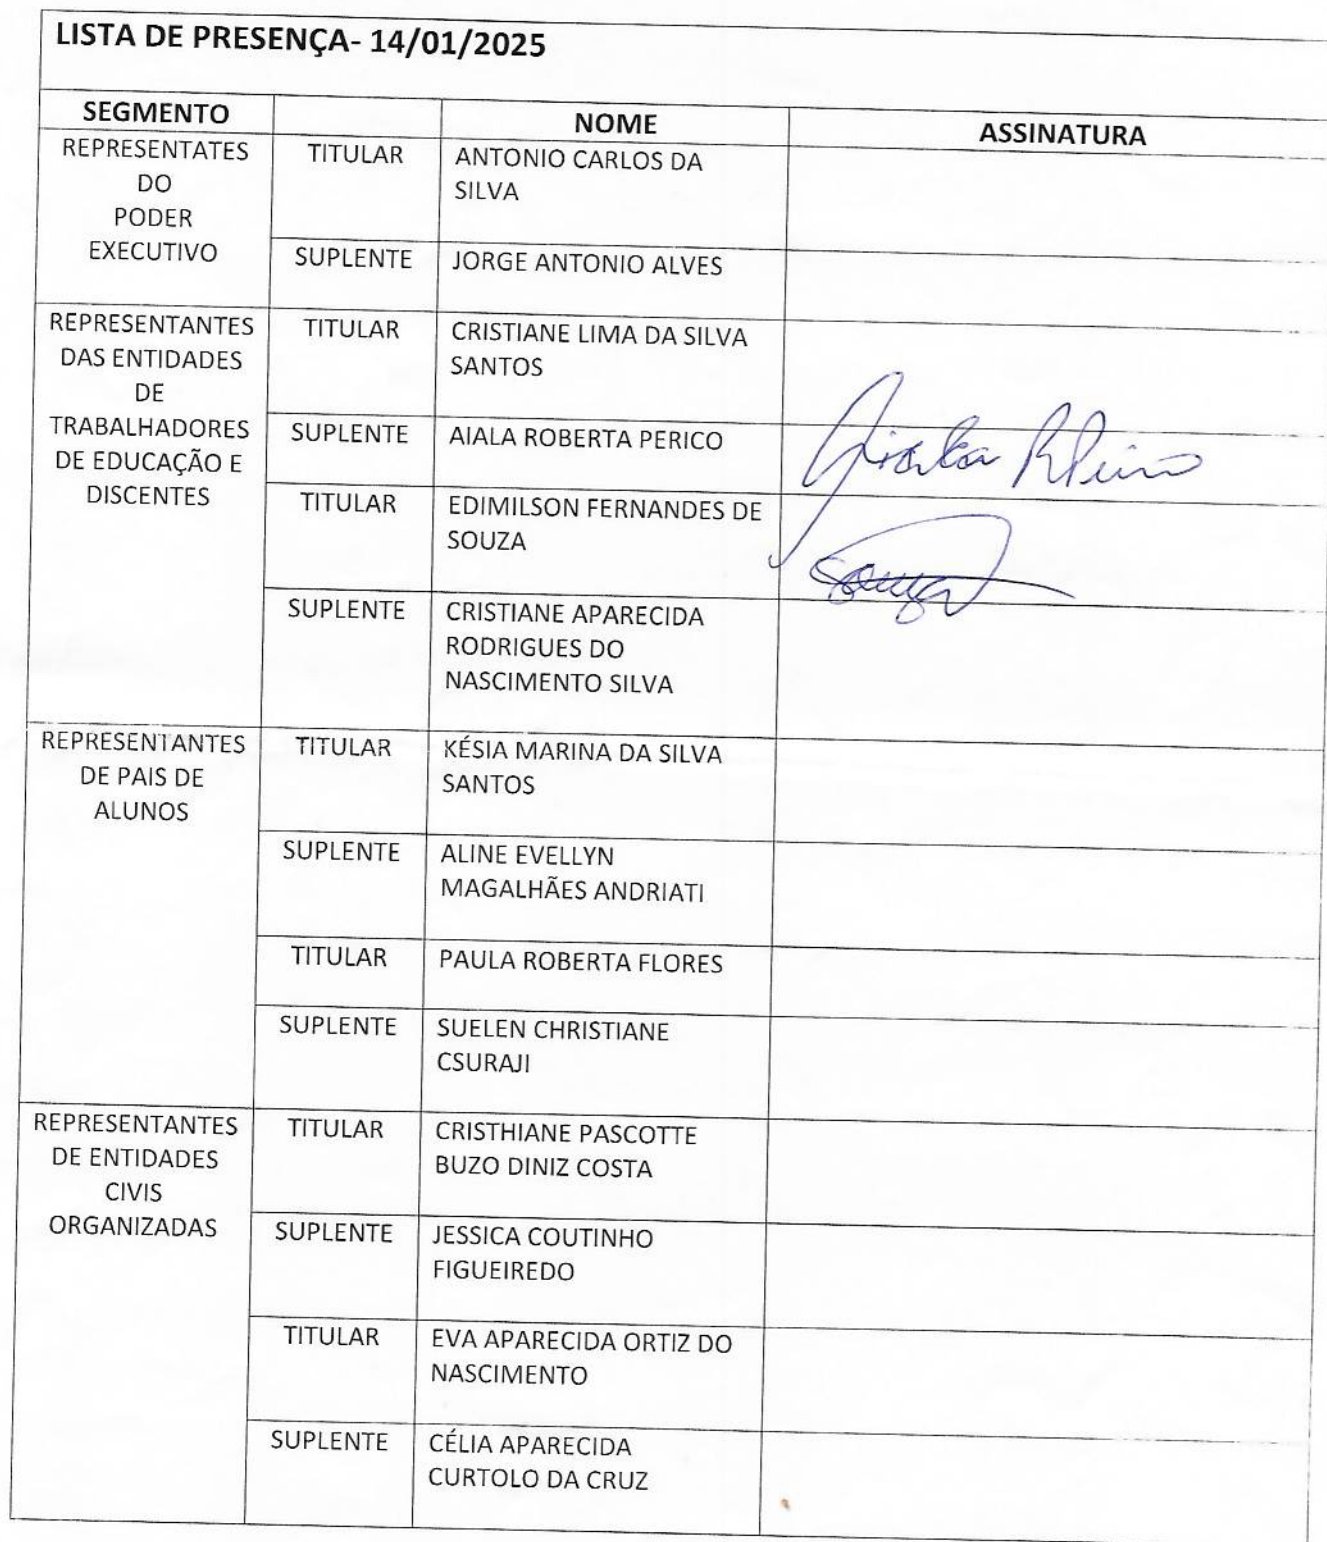 LISTA DE PRESENÇA- 14/01/2025
SEGMENTO NOME ASSINATURA
REPRESENTATES
DO
PODER
EXECUTIVO
TITULAR
ANTONIO CARLOS DA
SILVA
SUPLENTE
JORGE ANTONIO ALVES
REPRESENTANTES
DAS ENTIDADES
DE
TRABALHADORES
DE EDUCAÇÃO E
DISCENTES
TITULAR
CRISTIANE LIMA DA SILVA
SANTOS
SUPLENTE
AIALA ROBERTA PERICO
TITULAR
EDIMILSON FERNANDES DE
SOUZA
Souza
SUPLENTE
CRISTIANE APARECIDA
RODRIGUES DO
NASCIMENTO SILVA
REPRESENTANTES
DE PAIS DE
ALUNOS
TITULAR
KÉSIA MARINA DA SILVA
SANTOS
SUPLENTE
ALINE EVELLYN
MAGALHÃES ANDRIATI
TITULAR
PAULA ROBERTA FLORES
SUPLENTE
SUELEN CHRISTIANE
CSURAJI
REPRESENTANTES
DE ENTIDADES
CIVIS
ORGANIZADAS
TITULAR
CRISTHIANE PASCOTTE
BUZO DINIZ COSTA
SUPLENTE
JESSICA COUTINHO
FIGUEIREDO
TITULAR
EVA APARECIDA ORTIZ DO
NASCIMENTO
SUPLENTE
CÉLIA APARECIDA
CURTOLO DA CRUZ